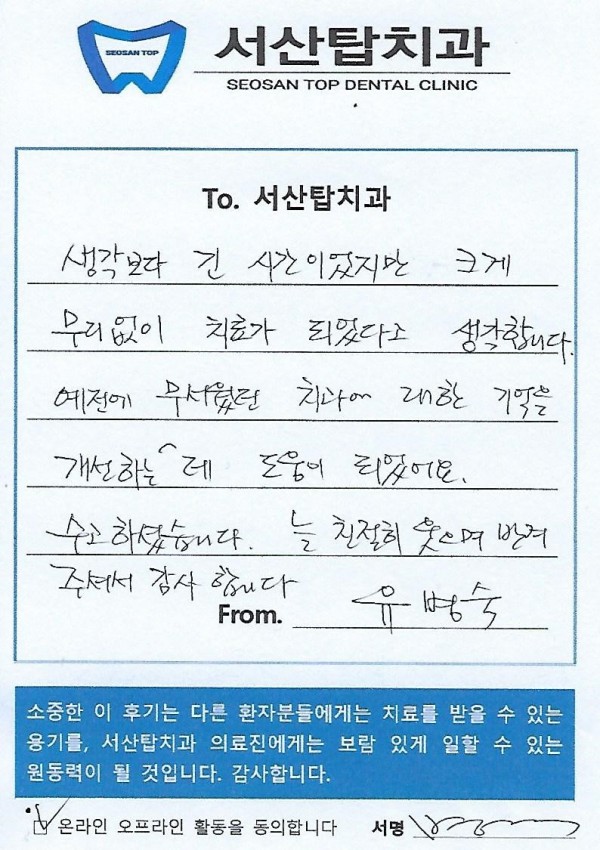 SEOSAN TOP
서산탑치과
SEOSAN TOP DENTAL CLINIC
To. 서산탑치과
생각보다 긴 시간이었지만 크게
무리없이 치료가 되었다고 생각합니다.
예전에 무서웠던 치과에 대한 기억을
개선하는^데 도움이 되었어요.
수고하셨습니다. 늘 친절히 웃으며 반겨
주셔서 감사 합니다
From. 유병숙
소중한 이 후기는 다른 환자분들에게는 치료를 받을 수 있는
용기를, 서산탑치과 의료진에게는 보람 있게 일할 수 있는
원동력이 될 것입니다. 감사합니다.
온라인 오프라인 활동을 동의합니다 서명